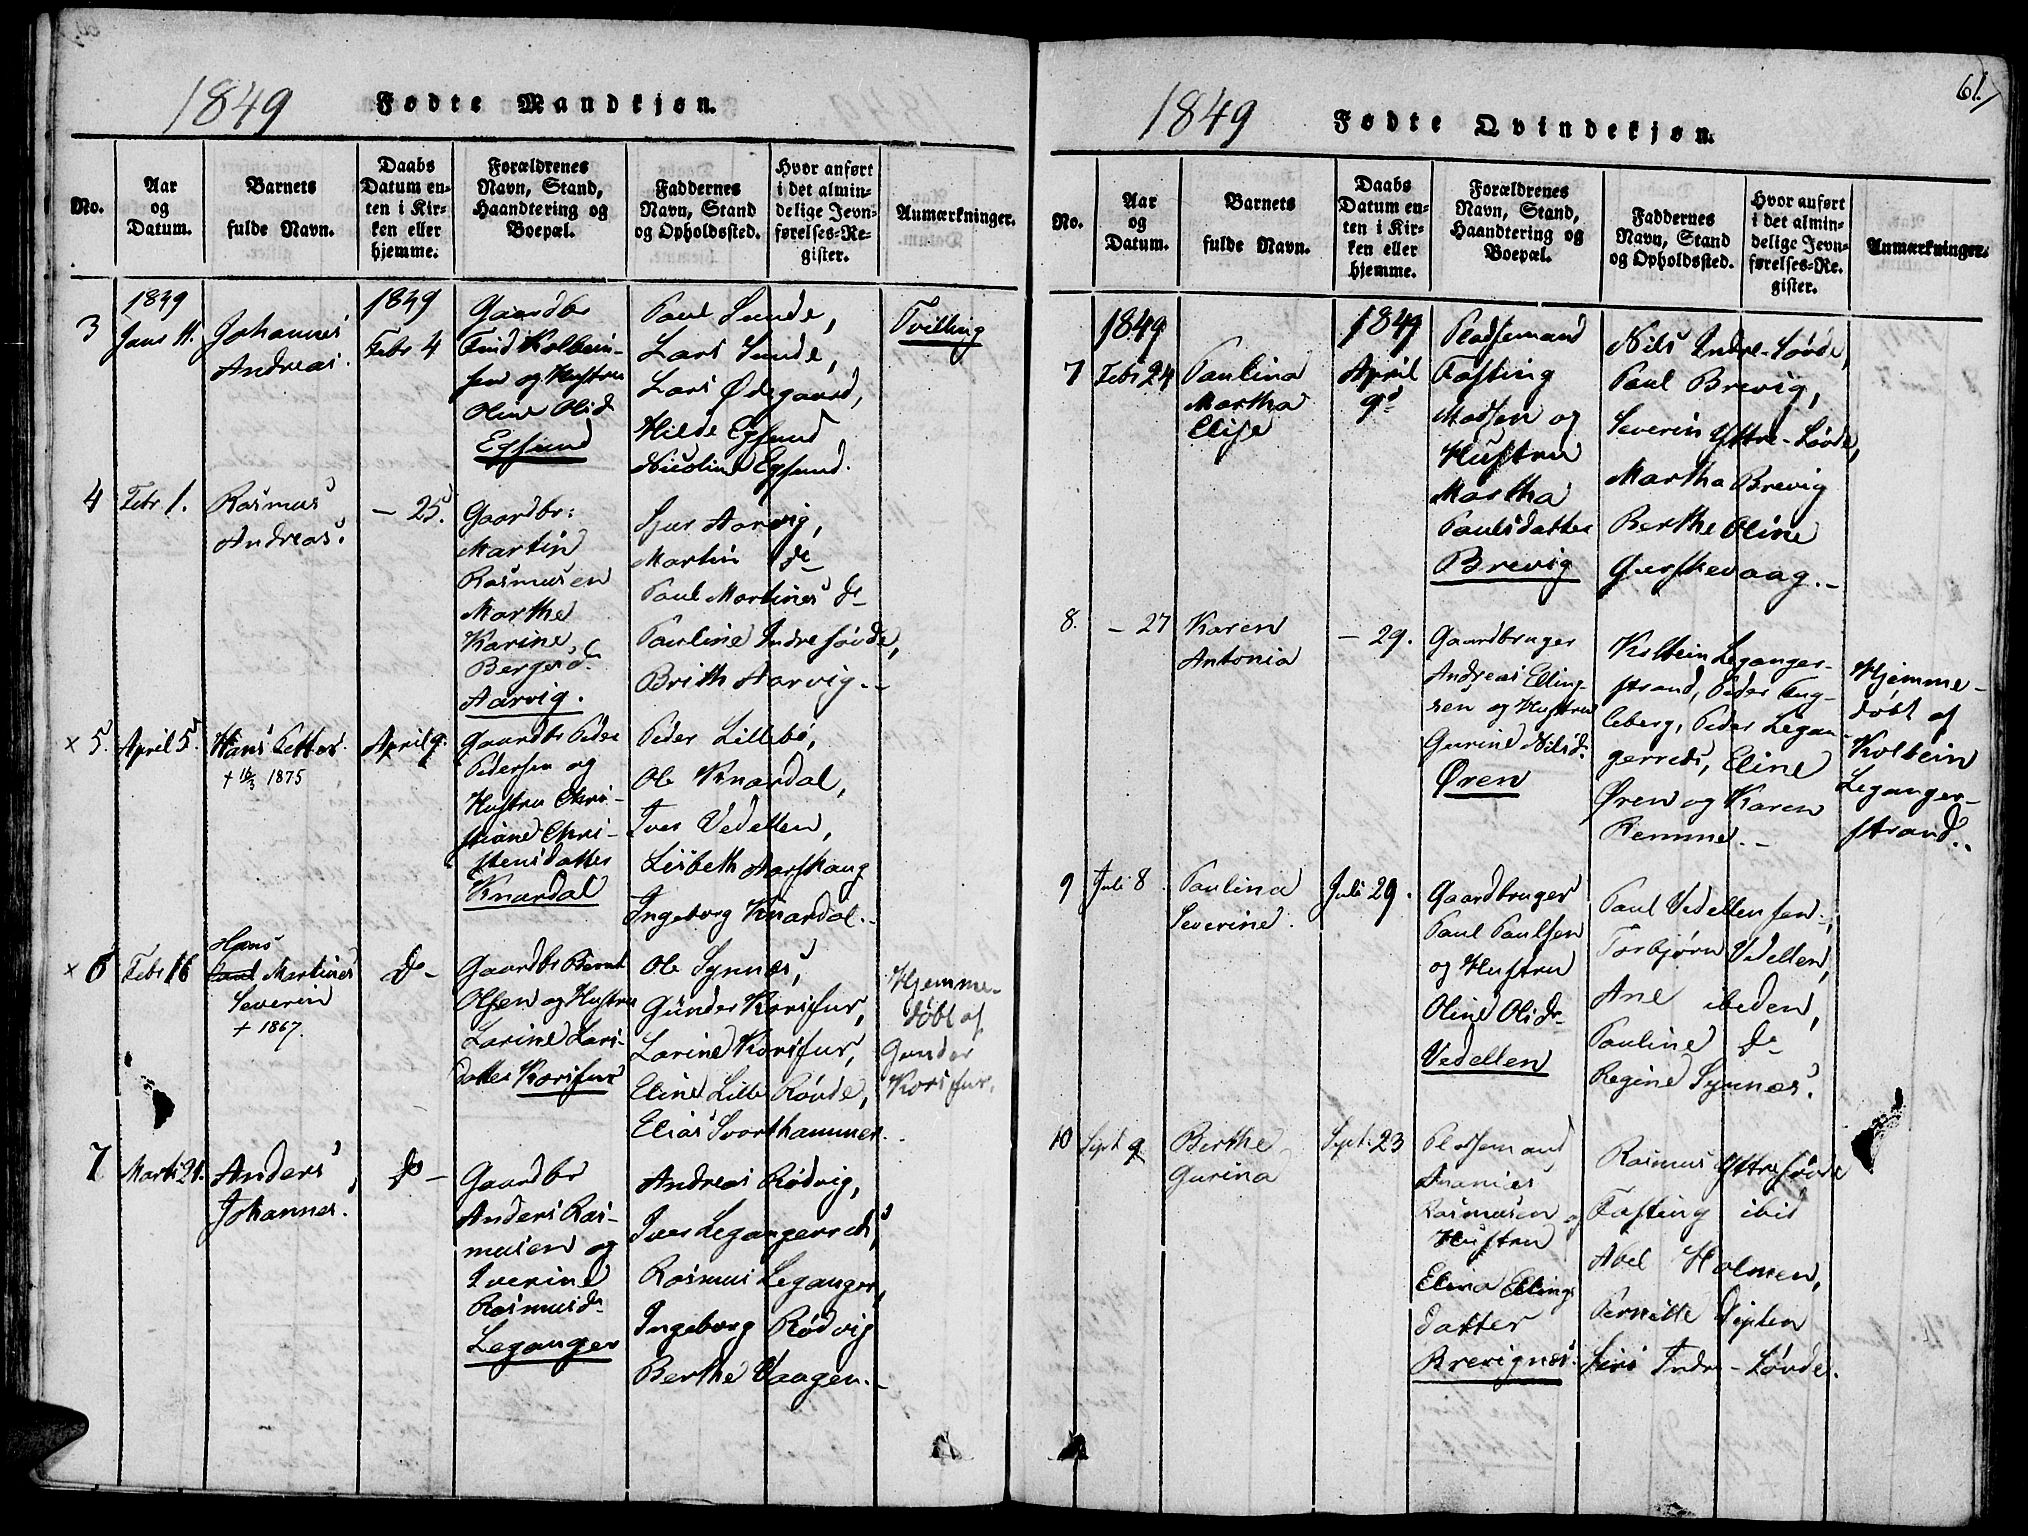 1849 Fødte Mandkjøn.
No.
Aar
og
Datum.
Barnets
fulde Navn.
Daabs
Datum en-
ten i Kir-
ken eller
hjemme.
Forældrenes
Navn, Stand,
Haandtering og
Boepæl.
Faddernes
Navn, Stand
og Opholdssted.
Hvor anført
i det almin-
delige Jevn-
førelses-Re-
gister.
Anmærkninger.
3
1849
Janr 11.
Johannes
Andreas.
1849
Febr 4
Gaardbr
Find Kolbein-
sen og Hustru
Oline Olsd
Egsund
Paul Sunde,
Lars Sunde,
Lars Ødegaard,
Hilde Egsund
Nicoline Egsund.
Tvilling
4
Febr 1.
Rasmus
Andreas.
— 25.
Gaardbr:
Martin
Rasmusen
Marthe
Karine
Aarvig.
Sjur Aarvig,
Martin do
Paul Martines do
Pauline Indre Søvde,
Brith Aarvig.-
x 5.
April 5.
Hans Petter.
+ 16/3 1875
April 9.
Gaardbr Peder
Pedersen og
Hustru Chri-
stiane Chri-
stensdatter
Knardal
Peder Lillebø,
Ole Knardal,
Iver Vedelden,
Lisbeth Aarskaug
Ingeborg Knardal.-
x 6
Febr 16
Hans
Paul Martines
Severin
+ 1867.
do
Gaardbr Bernt
Olsen og Hustru
Larine Lars-
datter Korsfur
Ole Synnes,
Gunder Korsfur,
Larine Korsfur,
Eline Lille Røvde,
Elias Svorthammer.
Hjemme-
døbt af
Gunder
Korsfur.
7
Marts 21.
Anders
Johannes.
do —
Gaardbr
Anders Ras-
musen og
Iverine
Rasmusdr
Leganger
Andreas Rødvig,
Iver Legangerreds,
Rasmus Leganger,
Ingeborg Rødvig
Berthe Vaagen.-
61.
1849 Fødte Qvindekjøn.
No.
Aar
og
Datum.
Barnets
fulde Navn.
Daabs
Datum en-
ten i Kir-
ken eller
hjemme.
Forældrenes
Navn, Stand,
Haandtering og
Boepæl.
Faddernes
Navn, Stand
og Opholdssted.
Hvor anført
i det almin-
delige Jevn-
førelses-Re-
gister.
Anmærkninger.
7
1849
Febr 24
Paulina
Martha
Elise
1849
April
9d
Pladsemand
Fasting
Madsen og
Hustru
Martha
Paulsdatter
Brevig
Nils Indre-Søvde,
Paul Brevig,
Severin Yttre-Søvde,
Martha Brevig
Berthe Oline
Gurskevaag.-
8.
— 27
Karen
Antonia
— 29.
Gaardbruger
Andreas Elling-
sen og Hustru
Gurine Nilsd.
Øren
Kolbein Leganger-
strand, Peder Eng-
leberg, Peder Legan-
gerreds, Eline
Øren og Karen
Remme.-
Hjemme-
døbt af
Kolbein
Leganger-
strand.
9
Juli 8.
Paulina
Severine.
Juli 29.
Gaardbruger
Paul Paulsen
og Hustru
Oline Olsdr
Vedelden
Paul Vedelden sen.,
Torbjørn Vedelden,
Ane ibiden,
Pauline do
Regine Synnes.
10
Sept 9
Berthe
Gurina
Sept. 23
Pladsemand
Ananias
Rasmusen og
Hustru
Elina Ellings
datter
Brevignes.
Rasmus Yttresøvde
Fasting ibid
Abel Holmen,
Pernille Vigten
Siri Indre-Søvde.